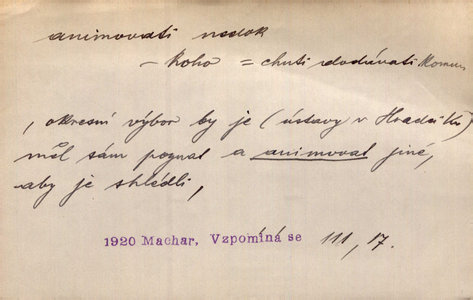 animovati nedok
– koho = chuti dodávati komu
, okresní výbor by je (ústavy v Hradci Kr)
měl sám poznat a animovat jiné,
aby je shlédli,
1920 Machar, Vzpomíná se 111, 17.